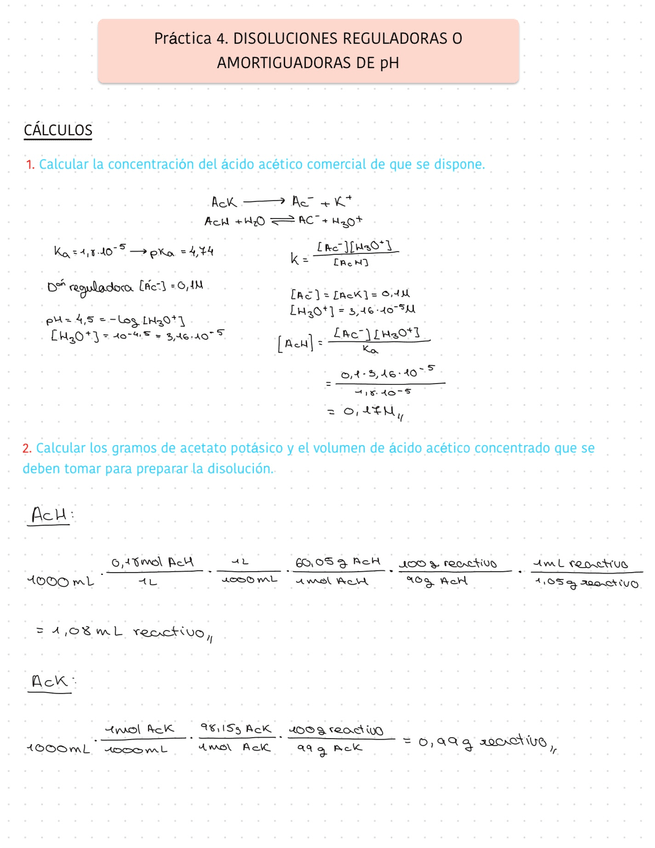 Práctica 4. DISOLUCIONES REGULADORAS O
AMORTIGUADORAS DE pH
CÁLCULOS
1. Calcular la concentración del ácido acético comercial de que se dispone.
AcK ⟶ Ac⁻ + K⁺
AcH + H₂O ⇌ AC⁻ + H₃O⁺
Ka = 1,8·10⁻⁵ → pKa = 4,74
K = [Ac⁻][H₃O⁺] / [AcH]
Dᵒⁿ reguladora [Ac⁻] = 0,1M
[Ac⁻] = [AcK] = 0,1M
[H₃O⁺] = 3,16·10⁻⁵M
pH = 4,5 = -Log [H₃O⁺]
[H₃O⁺] = 10⁻⁴·⁵ = 3,16·10⁻⁵
[AcH] = [Ac⁻][H₃O⁺] / Ka
= 0,1·3,16·10⁻⁵ / 1,8·10⁻⁵
= 0,17M//
2. Calcular los gramos de acetato potásico y el volumen de ácido acético concentrado que se
deben tomar para preparar la disolución.
AcH:
1000mL · 0,18mol AcH / 1L · 1L / 1000mL · 60,05g AcH / 1mol AcH · 100g reactivo / 90g AcH · 1mL reactivo / 1,05g reactivo
= 1,08mL reactivo//
AcK:
1000mL · 1mol AcK / 1000mL · 98,15g AcK / 1mol AcK · 100g reactivo / 99g AcK = 0,99g reactivo//